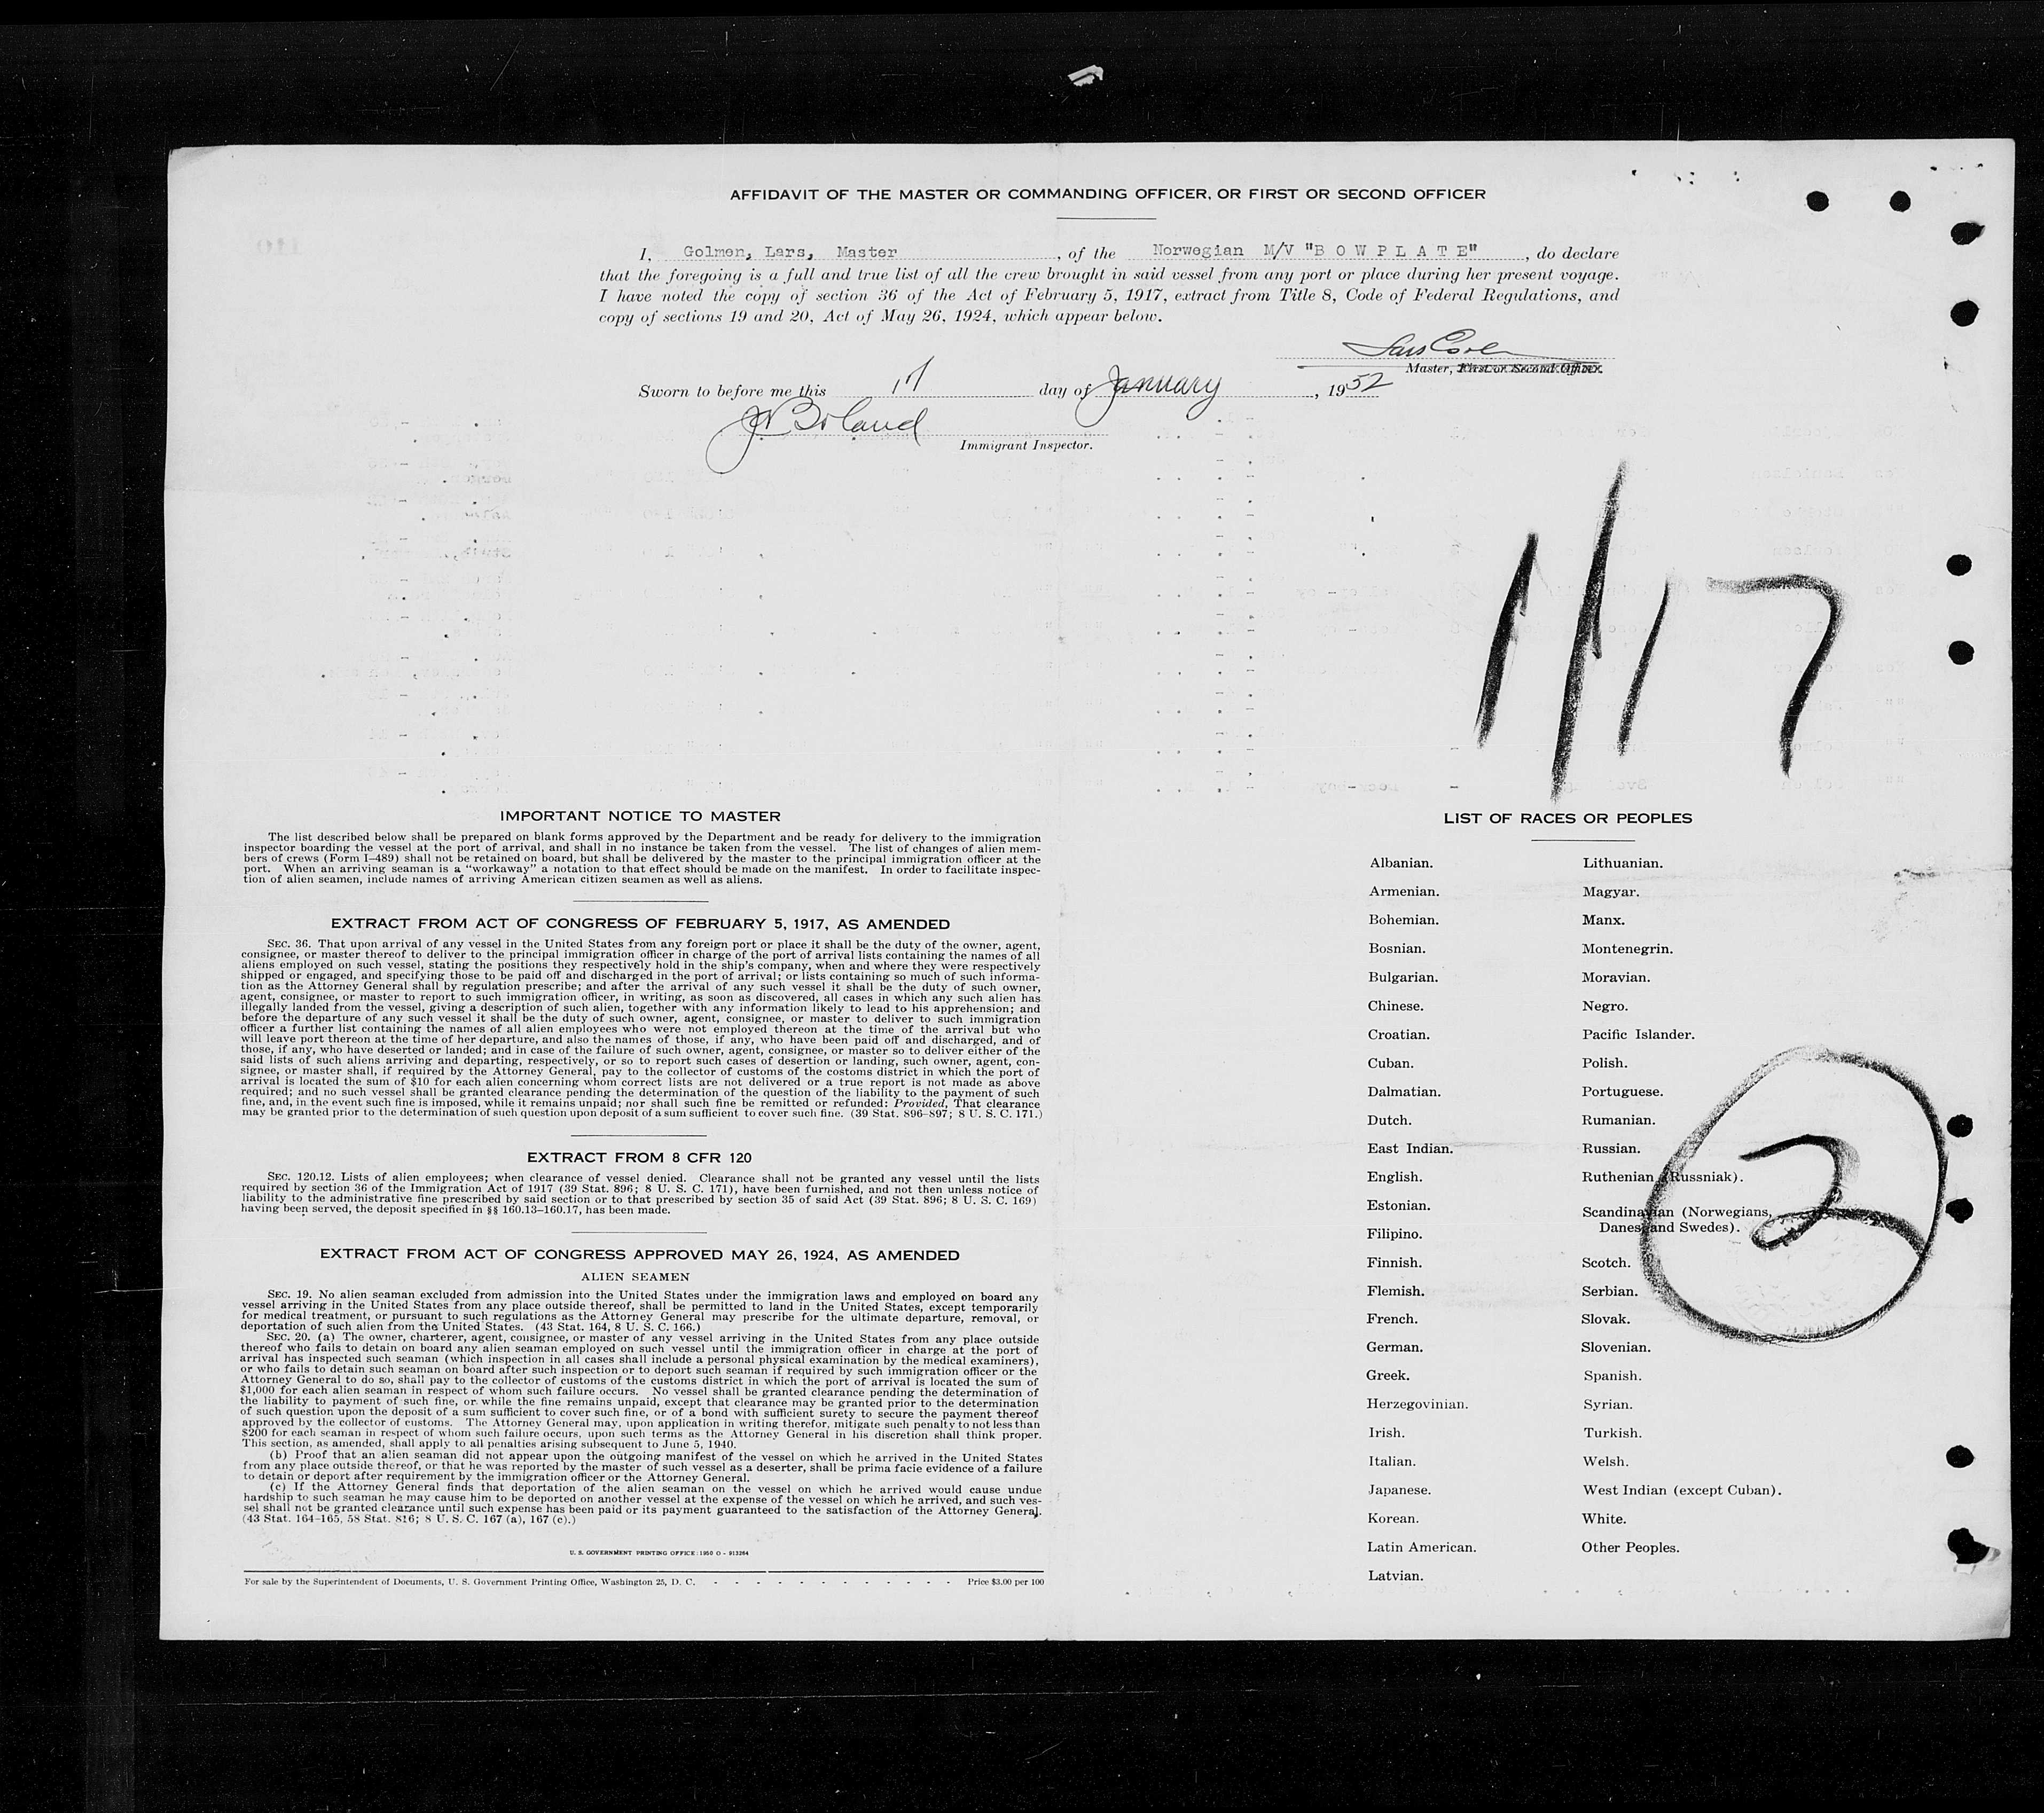 AFFIDAVIT OF THE MASTER OR COMMANDING OFFICER, OR FIRST OR SECOND OFFICER
I, Golmen, Lars, Master, of the Norwegian M/V "B O W P L A T E", do declare
that the foregoing is a full and true list of all the crew brought in said vessel from any port or place during her present voyage.
I have noted the copy of section 36 of the Act of February 5, 1917, extract from Title 8, Code of Federal Regulations, and
copy of sections 19 and 20, Act of May 26, 1924, which appear below.
Lars
Master, First or Second Officer.
Sworn to before me this 17 day of January, 1952
J Boland
Immigrant Inspector.
1/17
IMPORTANT NOTICE TO MASTER
The list described below shall be prepared on blank forms approved by the Department and be ready for delivery to the immigration
inspector boarding the vessel at the port of arrival, and shall in no instance be taken from the vessel. The list of changes of alien mem-
bers of crews (Form I–489) shall not be retained on board, but shall be delivered by the master to the principal immigration officer at the
port. When an arriving seaman is a "workaway" a notation to that effect should be made on the manifest. In order to facilitate inspec-
tion of alien seamen, include names of arriving American citizen seamen as well as aliens.
EXTRACT FROM ACT OF CONGRESS OF FEBRUARY 5, 1917, AS AMENDED
SEC. 36. That upon arrival of any vessel in the United States from any foreign port or place it shall be the duty of the owner, agent,
consignee, or master thereof to deliver to the principal immigration officer in charge of the port of arrival lists containing the names of all
aliens employed on such vessel, stating the positions they respectively hold in the ship's company, when and where they were respectively
shipped or engaged, and specifying those to be paid off and discharged in the port of arrival; or lists containing so much of such informa-
tion as the Attorney General shall by regulation prescribe; and after the arrival of any such vessel it shall be the duty of such owner,
agent, consignee, or master to report to such immigration officer, in writing, as soon as discovered, all cases in which any such alien has
illegally landed from the vessel, giving a description of such alien, together with any information likely to lead to his apprehension; and
before the departure of any such vessel it shall be the duty of such owner, agent, consignee, or master to deliver to such immigration
officer a further list containing the names of all alien employees who were not employed thereon at the time of the arrival but who
will leave port thereon at the time of her departure, and also the names of those, if any, who have been paid off and discharged, and of
those, if any, who have deserted or landed; and in case of the failure of such owner, agent, consignee, or master so to deliver either of the
said lists of such aliens arriving and departing, respectively, or so to report such cases of desertion or landing, such owner, agent, con-
signee, or master shall, if required by the Attorney General, pay to the collector of customs of the costoms district in which the port of
arrival is located the sum of $10 for each alien concerning whom correct lists are not delivered or a true report is not made as above
required; and no such vessel shall be granted clearance pending the determination of the question of the liability to the payment of such
fine, and, in the event such fine is imposed, while it remains unpaid; nor shall such fine be remitted or refunded: Provided, That clearance
may be granted prior to the determination of such question upon deposit of a sum sufficient to cover such fine. (39 Stat. 896–897; 8 U. S. C. 171.)
EXTRACT FROM 8 CFR 120
SEC. 120.12. Lists of alien employees; when clearance of vessel denied. Clearance shall not be granted any vessel until the lists
required by section 36 of the Immigration Act of 1917 (39 Stat. 896; 8 U. S. C. 171), have been furnished, and not then unless notice of
liability to the administrative fine prescribed by said section or to that prescribed by section 35 of said Act (39 Stat. 896; 8 U. S. C. 169)
having been served, the deposit specified in §§ 160.13–160.17, has been made.
EXTRACT FROM ACT OF CONGRESS APPROVED MAY 26, 1924, AS AMENDED
ALIEN SEAMEN
SEC. 19. No alien seaman excluded from admission into the United States under the immigration laws and employed on board any
vessel arriving in the United States from any place outside thereof, shall be permitted to land in the United States, except temporarily
for medical treatment, or pursuant to such regulations as the Attorney General may prescribe for the ultimate departure, removal, or
deportation of such alien from the United States. (43 Stat. 164, 8 U. S. C. 166.)
SEC. 20. (a) The owner, charterer, agent, consignee, or master of any vessel arriving in the United States from any place outside
thereof who fails to detain on board any alien seaman employed on such vessel until the immigration officer in charge at the port of
arrival has inspected such seaman (which inspection in all cases shall include a personal physical examination by the medical examiners),
or who fails to detain such seaman on board after such inspection or to deport such seaman if required by such immigration officer or the
Attorney General to do so, shall pay to the collector of customs of the customs district in which the port of arrival is located the sum of
$1,000 for each alien seaman in respect of whom such failure occurs. No vessel shall be granted clearance pending the determination of
the liability to payment of such fine, or while the fine remains unpaid, except that clearance may be granted prior to the determination
of such question upon the deposit of a sum sufficient to cover such fine, or of a bond with sufficient surety to secure the payment thereof
approved by the collector of customs. The Attorney General may, upon application in writing therefor, mitigate such penalty to not less than
$200 for each seaman in respect of whom such failure occurs, upon such terms as the Attorney General in his discretion shall think proper.
This section, as amended, shall apply to all penalties arising subsequent to June 5, 1940.
(b) Proof that an alien seaman did not appear upon the outgoing manifest of the vessel on which he arrived in the United States
from any place outside thereof, or that he was reported by the master of such vessel as a deserter, shall be prima facie evidence of a failure
to detain or deport after requirement by the immigration officer or the Attorney General.
(c) If the Attorney General finds that deportation of the alien seaman on the vessel on which he arrived would cause undue
hardship to such seaman he may cause him to be deported on another vessel at the expense of the vessel on which he arrived, and such ves-
sel shall not be granted clearance until such expense has been paid or its payment guaranteed to the satisfaction of the Attorney General.
(43 Stat. 164–165, 58 Stat. 816; 8 U. S. C. 167 (a), 167 (c).)
U. S. GOVERNMENT PRINTING OFFICE: 1950 O - 913264
For sale by the Superintendent of Documents, U. S. Government Printing Office, Washington 25, D. C. - - - - - - - - - - - - Price $3.00 per 100
LIST OF RACES OR PEOPLES
Albanian.
Armenian.
Bohemian.
Bosnian.
Bulgarian.
Chinese.
Croatian.
Cuban.
Dalmatian.
Dutch.
East Indian.
English.
Estonian.
Filipino.
Finnish.
Flemish.
French.
German.
Greek.
Herzegovinian.
Irish.
Italian.
Japanese.
Korean.
Latin American.
Latvian.
Lithuanian.
Magyar.
Manx.
Montenegrin.
Moravian.
Negro.
Pacific Islander.
Polish.
Portuguese.
Rumanian.
Russian.
Ruthenian (Russniak).
Scandinavian (Norwegians,
Danes and Swedes).
Scotch.
Serbian.
Slovak.
Slovenian.
Spanish.
Syrian.
Turkish.
Welsh.
West Indian (except Cuban).
White.
Other Peoples.
2